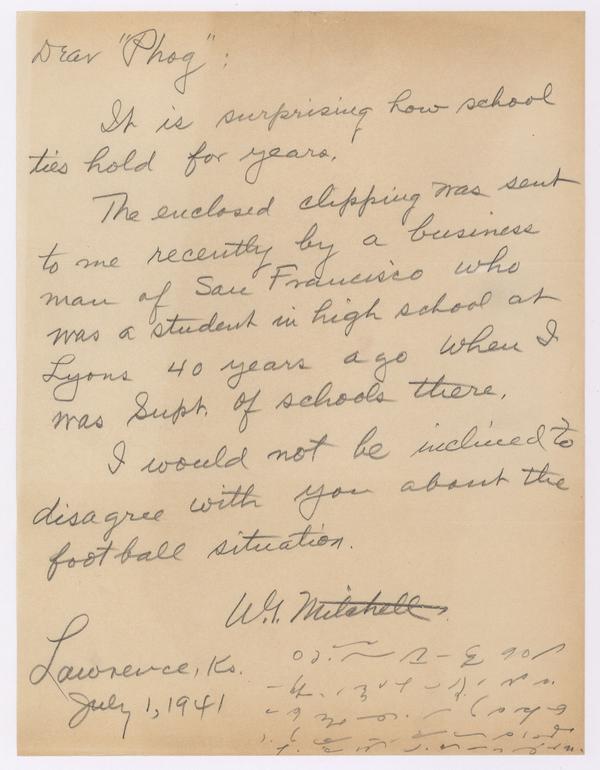 Dear "Phog":
It is surprising how school
ties hold for years.
The enclosed clipping was sent
to me recently by a business
man of San Francisco who
was a student in high school at
Lyons 40 years ago when I
was Supt. of schools there.
I would not be inclined to
disagree with you about the
football situation.
W. Mitchell.
Lawrence, Ks.
July 1, 1941